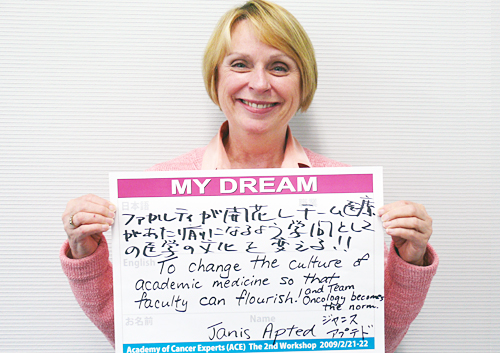 MY DREAM
日本語
ファカルティが開花しチーム医療
があたり前になるよう学問として
の医学の文化を変える!!
English
To change the culture of
academic medicine so that
faculty can flourish! and Team
Oncology becomes
the norm.
お名前
Name
Janis Apted
ジャニス
アプテド
Academy of Cancer Experts (ACE) The 2nd Workshop 2009/2/21-22